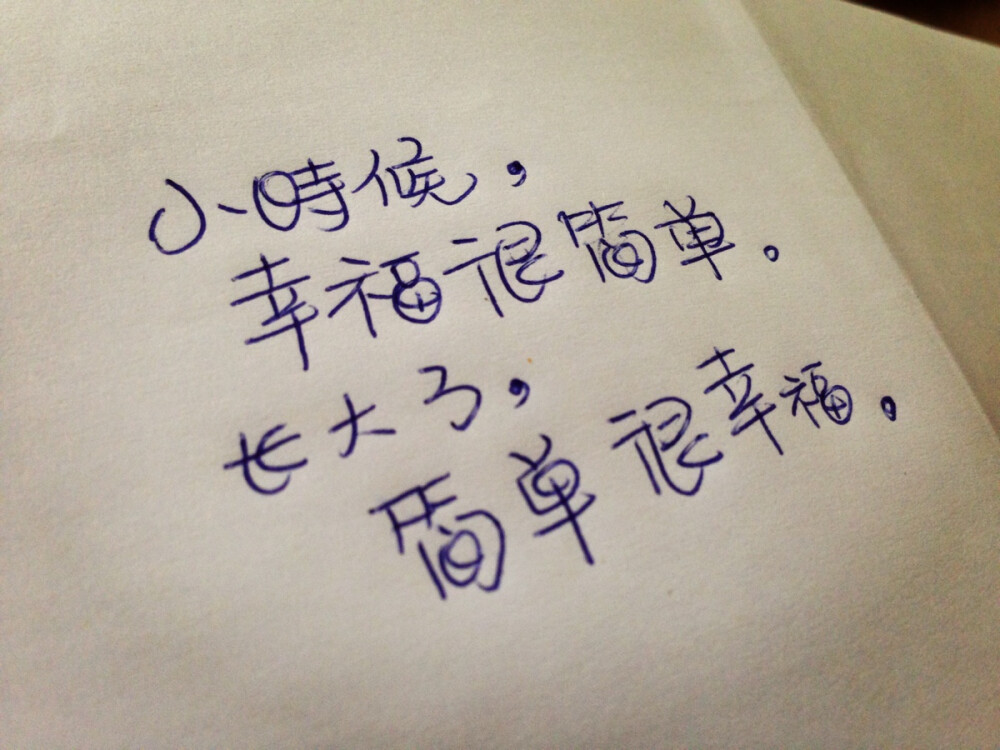 小時候，
幸福很简单.
长大了，
简单很幸福.